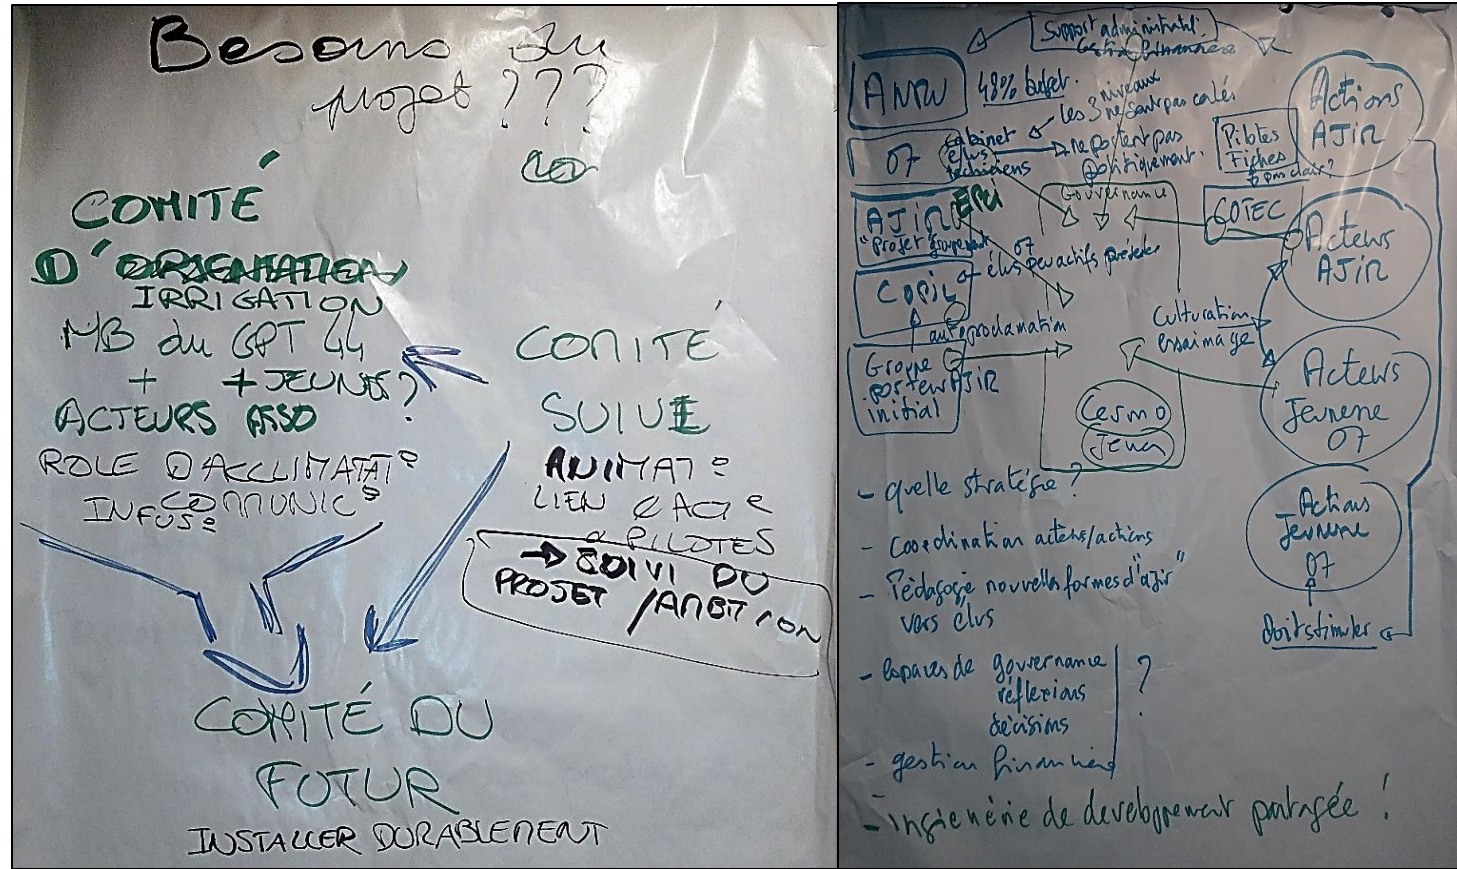 Besoins du
projet ???
COMITÉ
D'ORIENTATION
IRRIGATION
MB du GPT 44
+ + JEUNES ?
ACTEURS ASSO
ROLE D'ACCLIMATATº
COMMUNICº
INFUSº
COMITÉ
SUIVI
ANIMATº
LIEN
PILOTES
→ SUIVI DU
PROJET / AMBITION
COMITÉ DU
FUTUR
INSTALLER DURABLEMENT
Support administratif
Gestion financière
ANRU
48% budget.
les 3 niveaux
ne sont pas calés
07
cabinet
élus
techniciens
ne portent pas
politiquement.
Pilotes
Fiches
pas clair?
Actions
AJIR
AJIR
"Projet groupement
EPCI
Gouvernance
COTEC
Acteurs
AJIR
07
élus peu actifs
COPIL
auto proclamation
Culturation
essaimage
Groupe
porteur AJIR
initial
Cermo
Jena
Acteurs
Jeunesse
07
Actions
Jeunesse
07
Doit stimuler
- quelle stratégie ?
- Coordination acteurs/actions
- Pédagogie nouvelles formes d'"ajir"
vers élus
- espaces de gouvernance
réflexions
décisions
?
- gestion financière
- ingiénérie de developpement partagée !